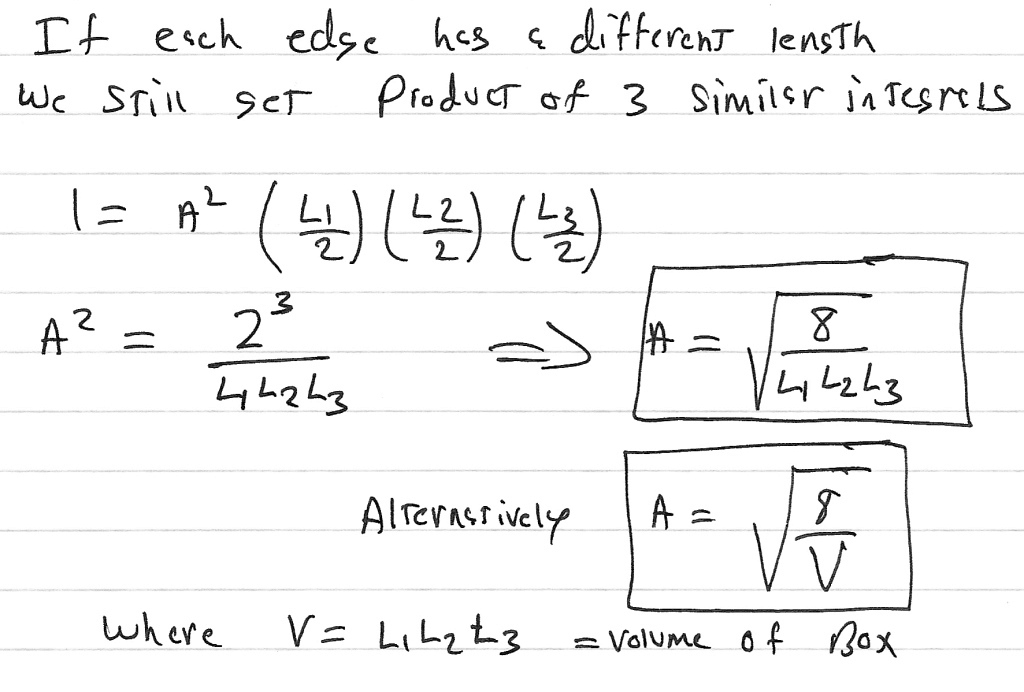 If each edge has a different length
We still get Product of 3 similar integrals
1 = A² (L1/2) (L2/2) (L3/2)
A² = 2³/(L1L2L3) => A = √(8/(L1L2L3))
Alternatively A = √(8/V)
where V = L1L2L3 = Volume of Box